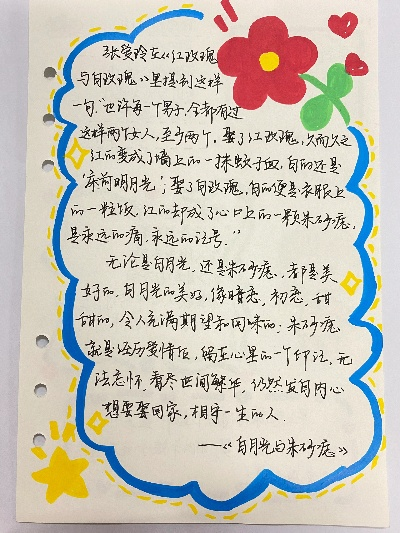 张爱玲在《红玫瑰
与白玫瑰》里提到这样
一句:“也许每一个男子,全都有过
这样两个女人,至少两个,娶了红玫瑰,久而久之
红的变成了墙上的一抹蚊子血,白的还是
‘床前明月光’;娶了白玫瑰,白的便是衣服上
的一粒饭,红的却成了心口上的一颗朱砂痣,
是永远的痛,永远的记号.”
无论是白月光,还是朱砂痣,都是美
好的,白月光的美好,像暗恋,初恋,甜
甜的,令人充满期望和回味的.朱砂痣
就是经历爱情后,烙在心里的一个印记,无
法忘怀.看尽世间繁华,仍然发自内心
想要娶回家,相守一生的人.
——《白月光与朱砂痣》